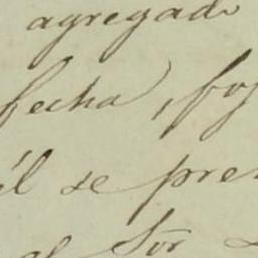 agregado
fecha, foj
él se pre
al Sor